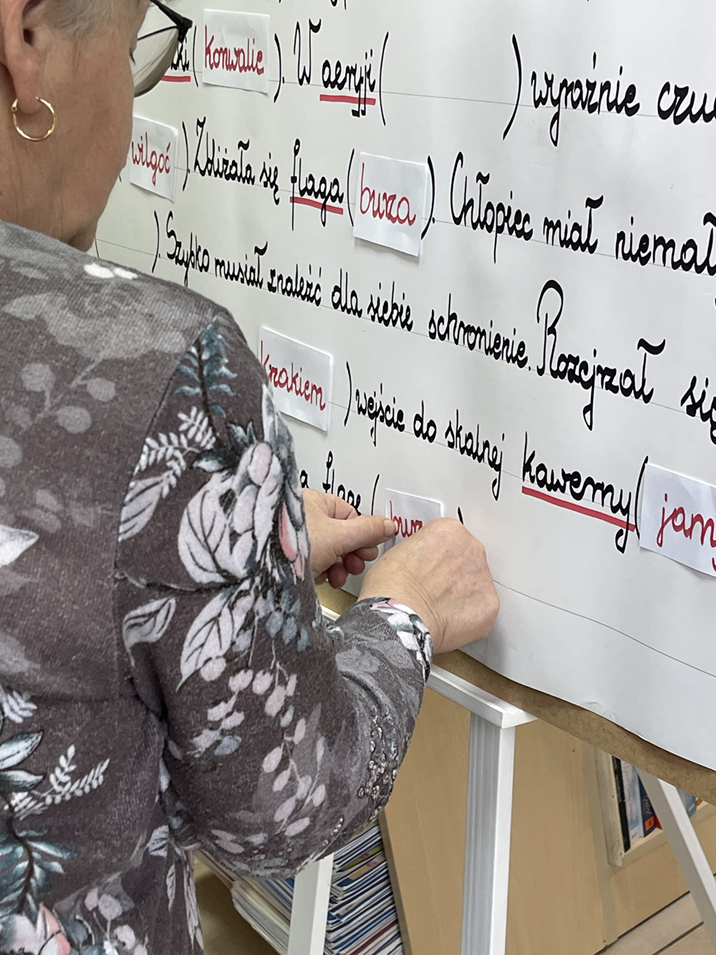 (konwalie). W aeryji ( ) wyraźnie czu
wilgoć). Zbliżała się flaga (burza). Chłopiec miał niemał
). Szybko musiał znaleźć dla siebie schronienie. Rozejrzał się
krzakiem) wejście do skalnej kawerny (jamy
flagę (burz )